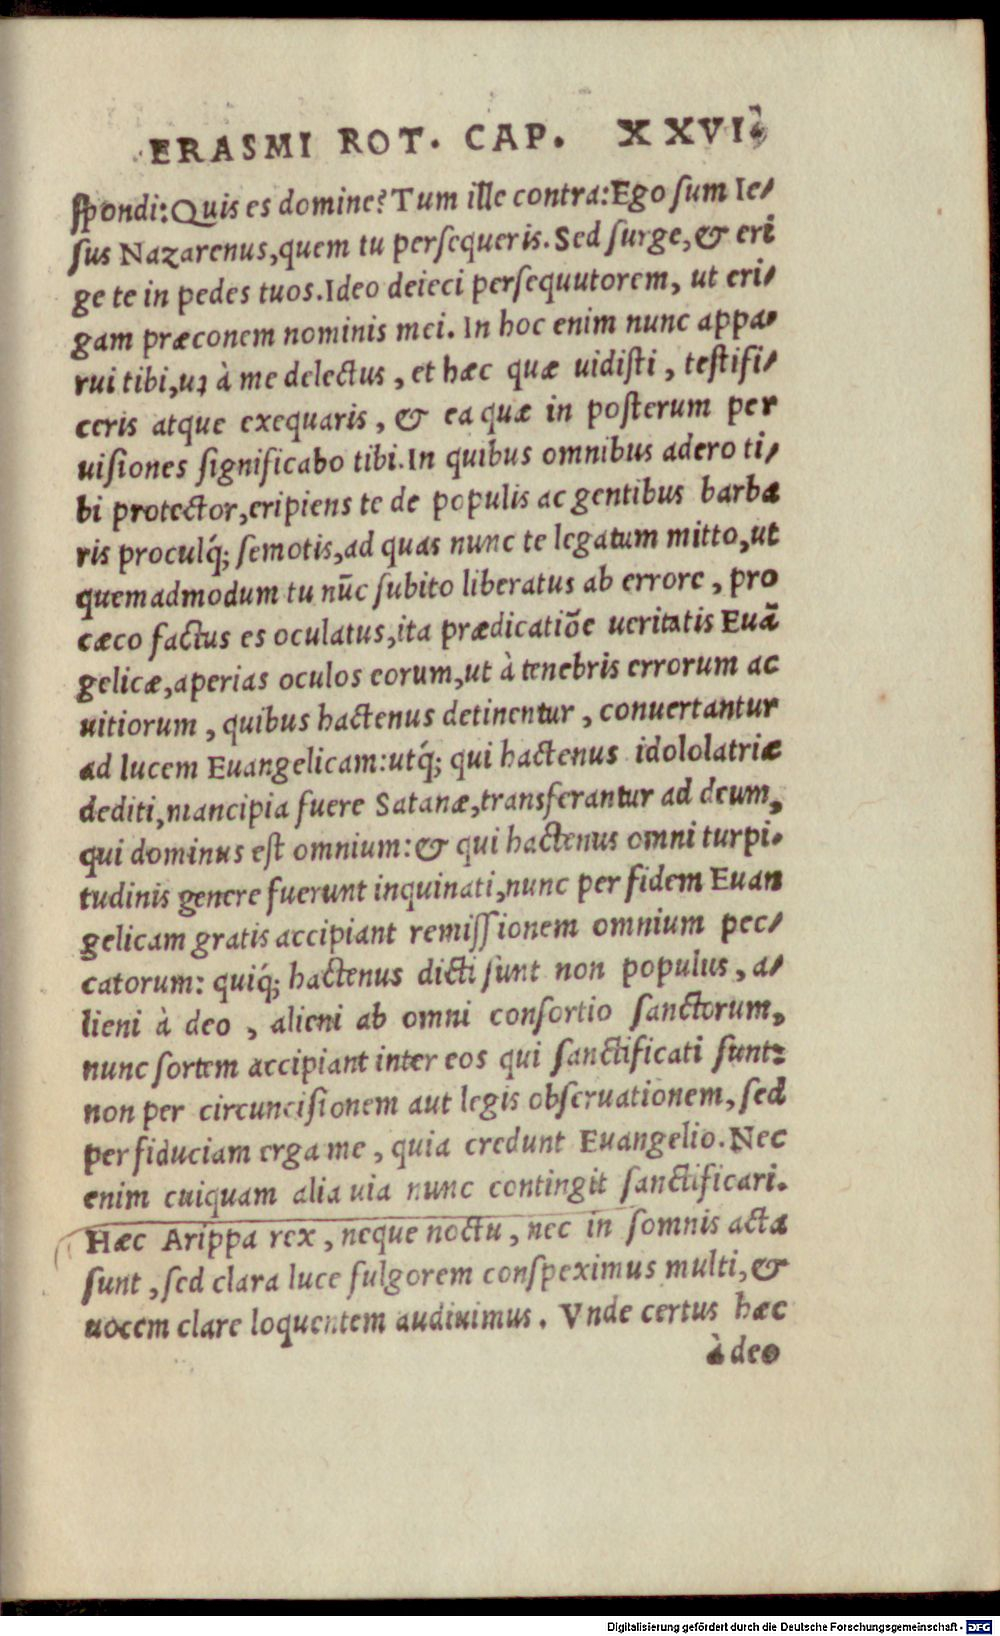 ERASMI ROT. CAP. XXVI.
ſpondi: Quis es domine? Tum ille contra: Ego ſum Ie/
ſus Nazarenus, quem tu perſequeris. Sed ſurge, & eri
ge te in pedes tuos. Ideo deieci perſequutorem, ut eri/
gam præconem nominis mei. In hoc enim nunc appa/
rui tibi, uʇ à me delectus, et hæc quæ uidiſti, teſtifi/
ceris atque exequaris, & ea quæ in poſterum per
uiſiones ſignificabo tibi. In quibus omnibus adero ti/
bi protector, eripiens te de populis ac gentibus barba
ris proculq́; ſemotis, ad quas nunc te legatum mitto, ut
quemadmodum tu nūc ſubito liberatus ab errore, pro
cæco factus es oculatus, ita prædicatiõe ueritatis Euã
gelicæ, aperias oculos eorum, ut à tenebris errorum ac
uitiorum, quibus hactenus detinentur, conuertantur
ad lucem Euangelicam: utq́; qui hactenus idololatriæ
dediti, mancipia fuere Satanæ, transferantur ad deum,
qui dominus eſt omnium: & qui hactenus omni turpi-
tudinis genere fuerunt inquinati, nunc per fidem Euan
gelicam gratis accipiant remiſſionem omnium pec/
catorum: quiq́; hactenus dicti ſunt non populus, a/
lieni à deo, alieni ab omni conſortio ſanctorum,
nunc ſortem accipiant inter eos qui ſanctificati ſunt:
non per circunciſionem aut legis obſeruationem, ſed
per fiduciam erga me, quia credunt Euangelio. Nec
enim cuiquam alia uia nunc contingit ſanctificari.
Hæc Arippa rex, neque noctu, nec in ſomnis acta
ſunt, ſed clara luce fulgorem conſpeximus multi, &
uocem clare loquentem audiuimus. Vnde certus hæc
à deo
Digitalisierung gefördert durch die Deutsche Forschungsgemeinschaft - DFG